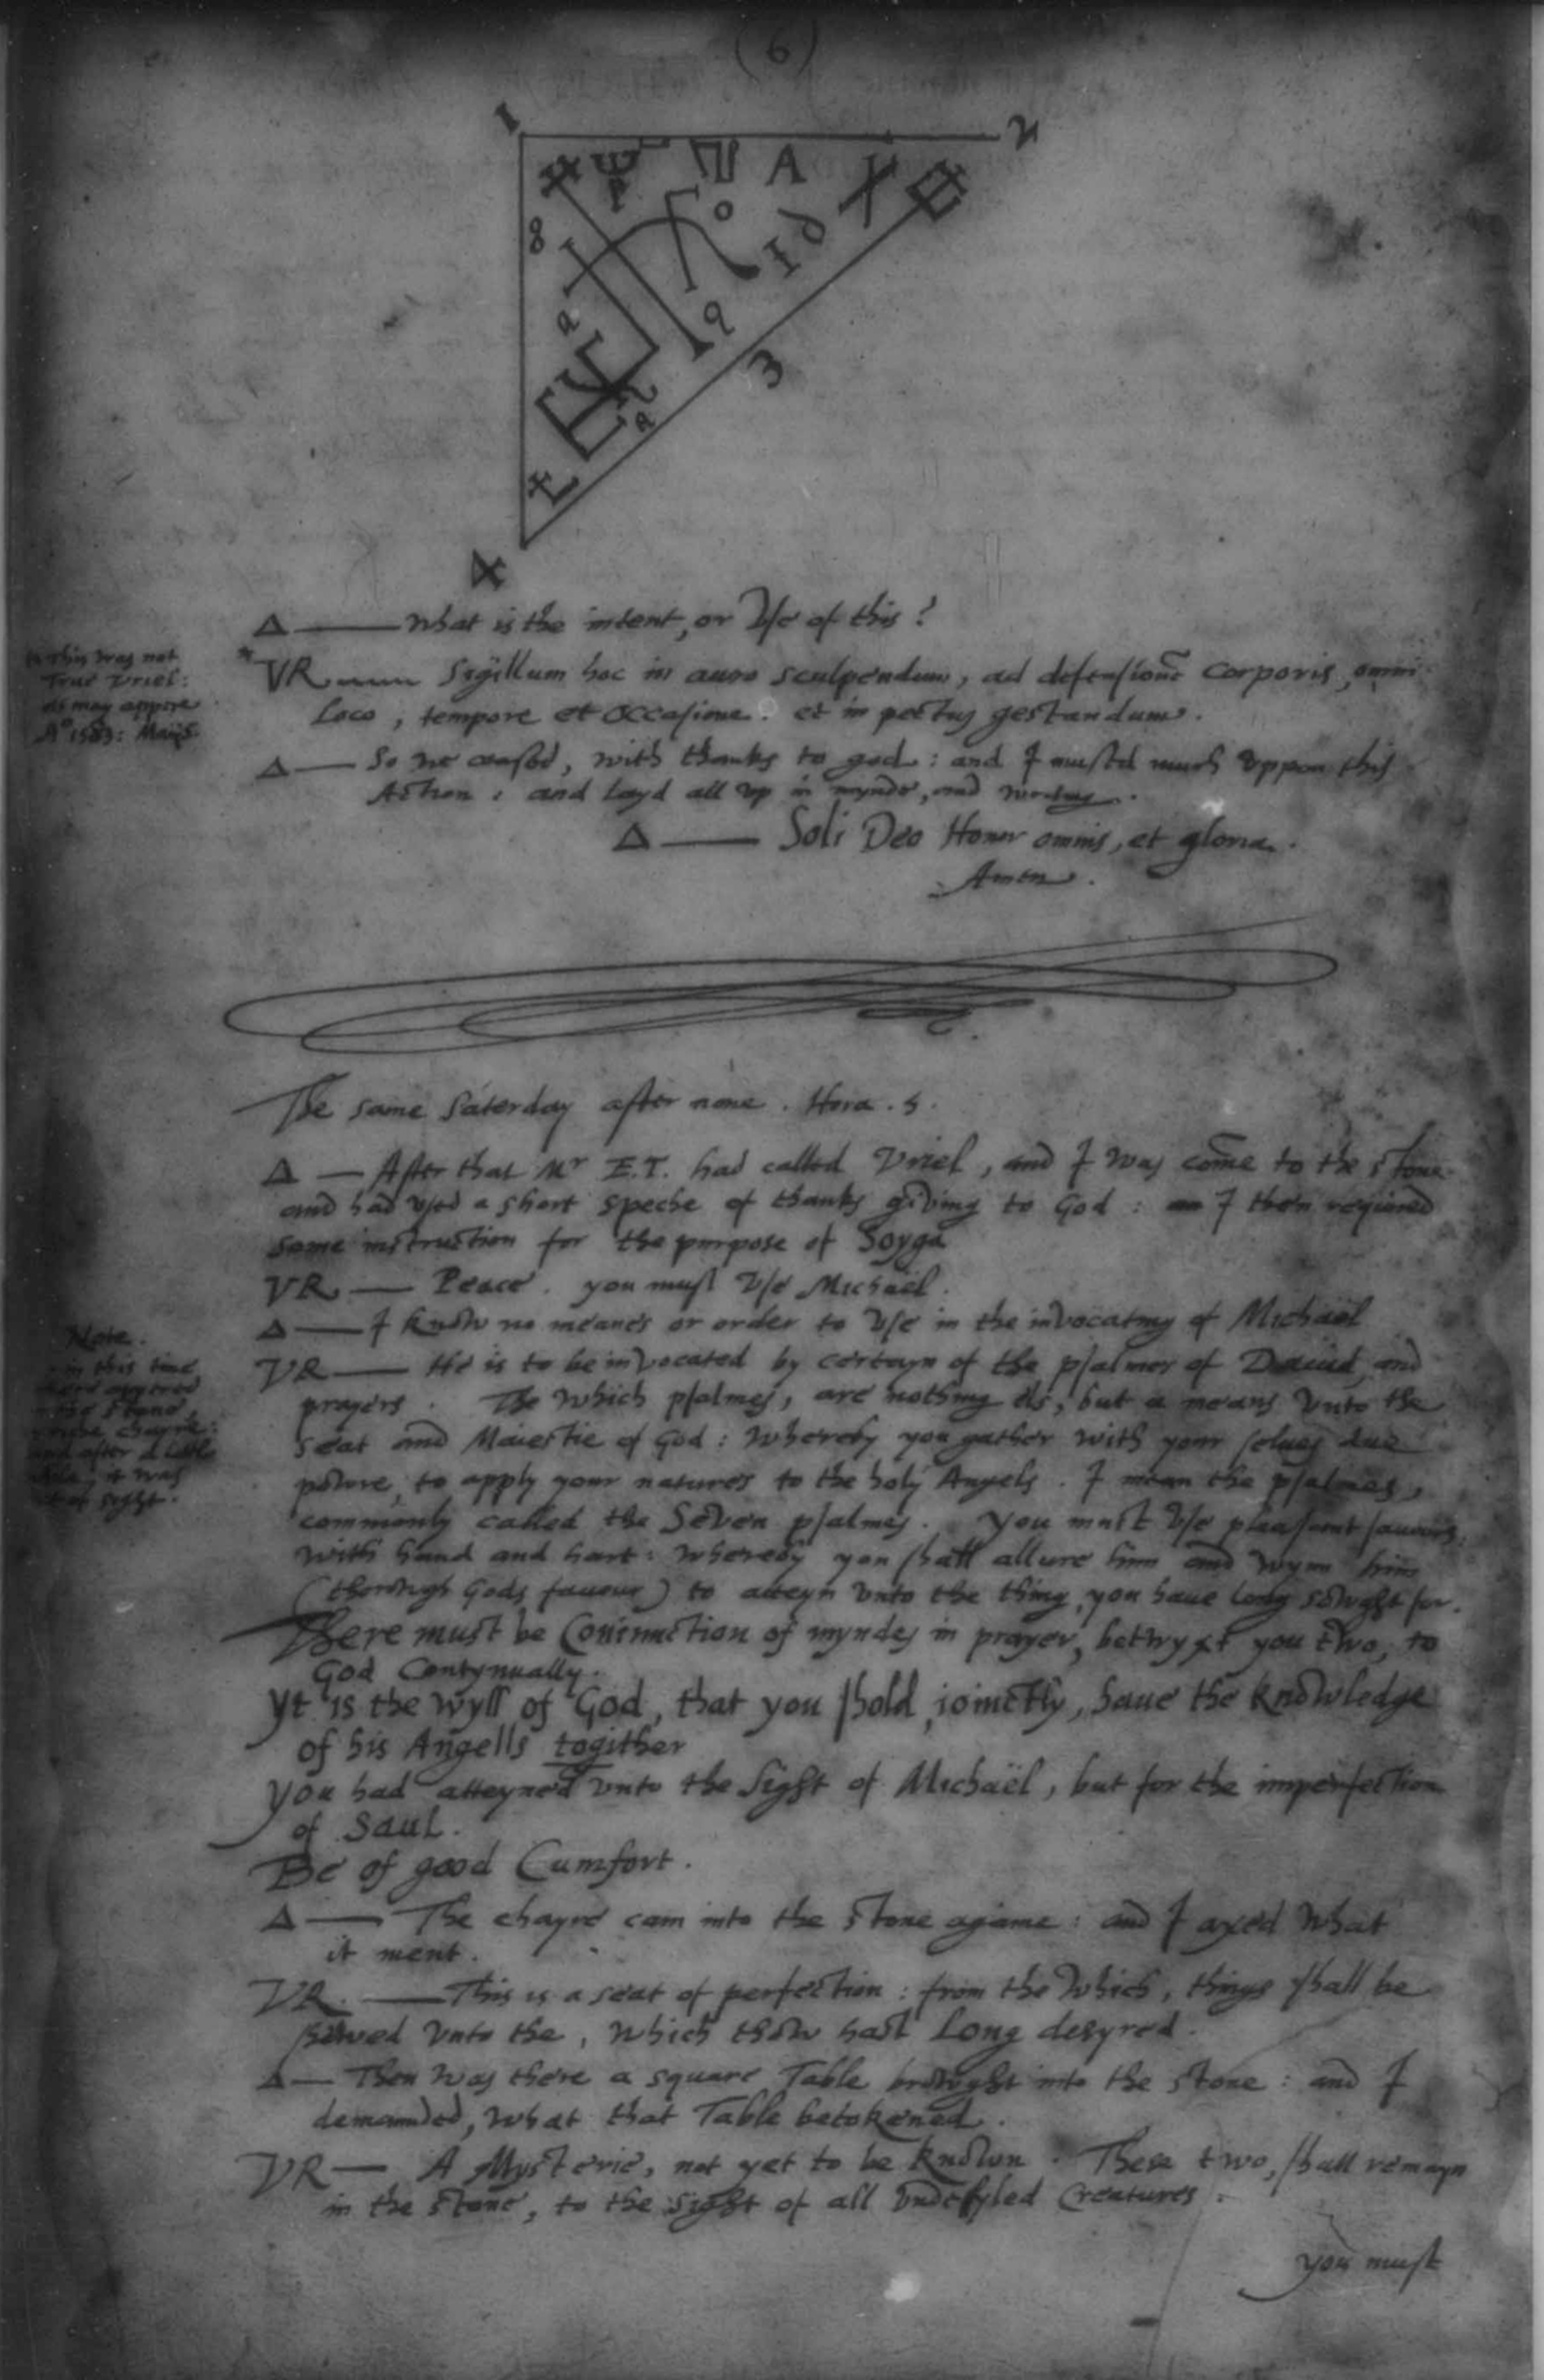 (6)
1
2
A
8
3
4
Δ —— What is the intent, or Vse of this?
* This was not
True Vriel:
as may appere
A° 1583: Maij 5
* VR —— Sigillum hoc in auro sculpendum, ad defensionē Corporis, omni
Loco, tempore et occasione. et in pectus gestandum.
Δ —— So we ceased, with thanks to god: and I mused much vppon this
Action: and layd all vp in mynde, and writing.
Δ —— Soli Deo Honor omnis, et gloria.
Amen.
The same Saterday after none. Hora. 5.
Δ — After that Mr E.T. had called Vriel, and I was come to the stone
and had vsed a short speche of thanks giving to God: I then required
some instruction for the purpose of Soyga
VR — Peace. you must Vse Michaël.
Δ —— I know no meanes or order to Vse in the invocating of Michaël
VR —— He is to be invocated by certayn of the psalmes of Dauid, and
prayers. The which psalmes, are nothing els, but a means vnto the
seat and Maiestie of God: whereby you gather with your selues due
powre, to apply your natures to the holy Angels. I mean the psalmes,
commonly called the Seven psalmes. You must Vse pleasant sauours:
with hand and hart: whereby you shall allure him and wynn him
(thorowgh Gods fauour) to atteyn vnto the thing, you haue long sowght for.
Note.
in this time
the stone,
the chayre:
and after a little
while, it was
out of sight.
There must be Coniunction of myndes in prayer, betwyxt you two, to
God Contynually.
Yt is the wyll of God, that you shold, ioinctly, haue the knowledge
of his Angells togither
You had atteyned vnto the Sight of Michaël, but for the imperfection
of Saul.
Be of good Cumfort.
Δ —— The chayre cam into the stone againe: and I axed what
it ment.
VR. —— This is a seat of perfection: from the which, things shall be
shewed vnto the, which thow hast long desyred.
Δ — Then was there a square Table browght into the stone: and I
demaunded, what that Table betokened.
VR — A Mysterie, not yet to be knowen. These two, shall remayn
in the stone, to the sight of all vndefyled Creatures.
you must